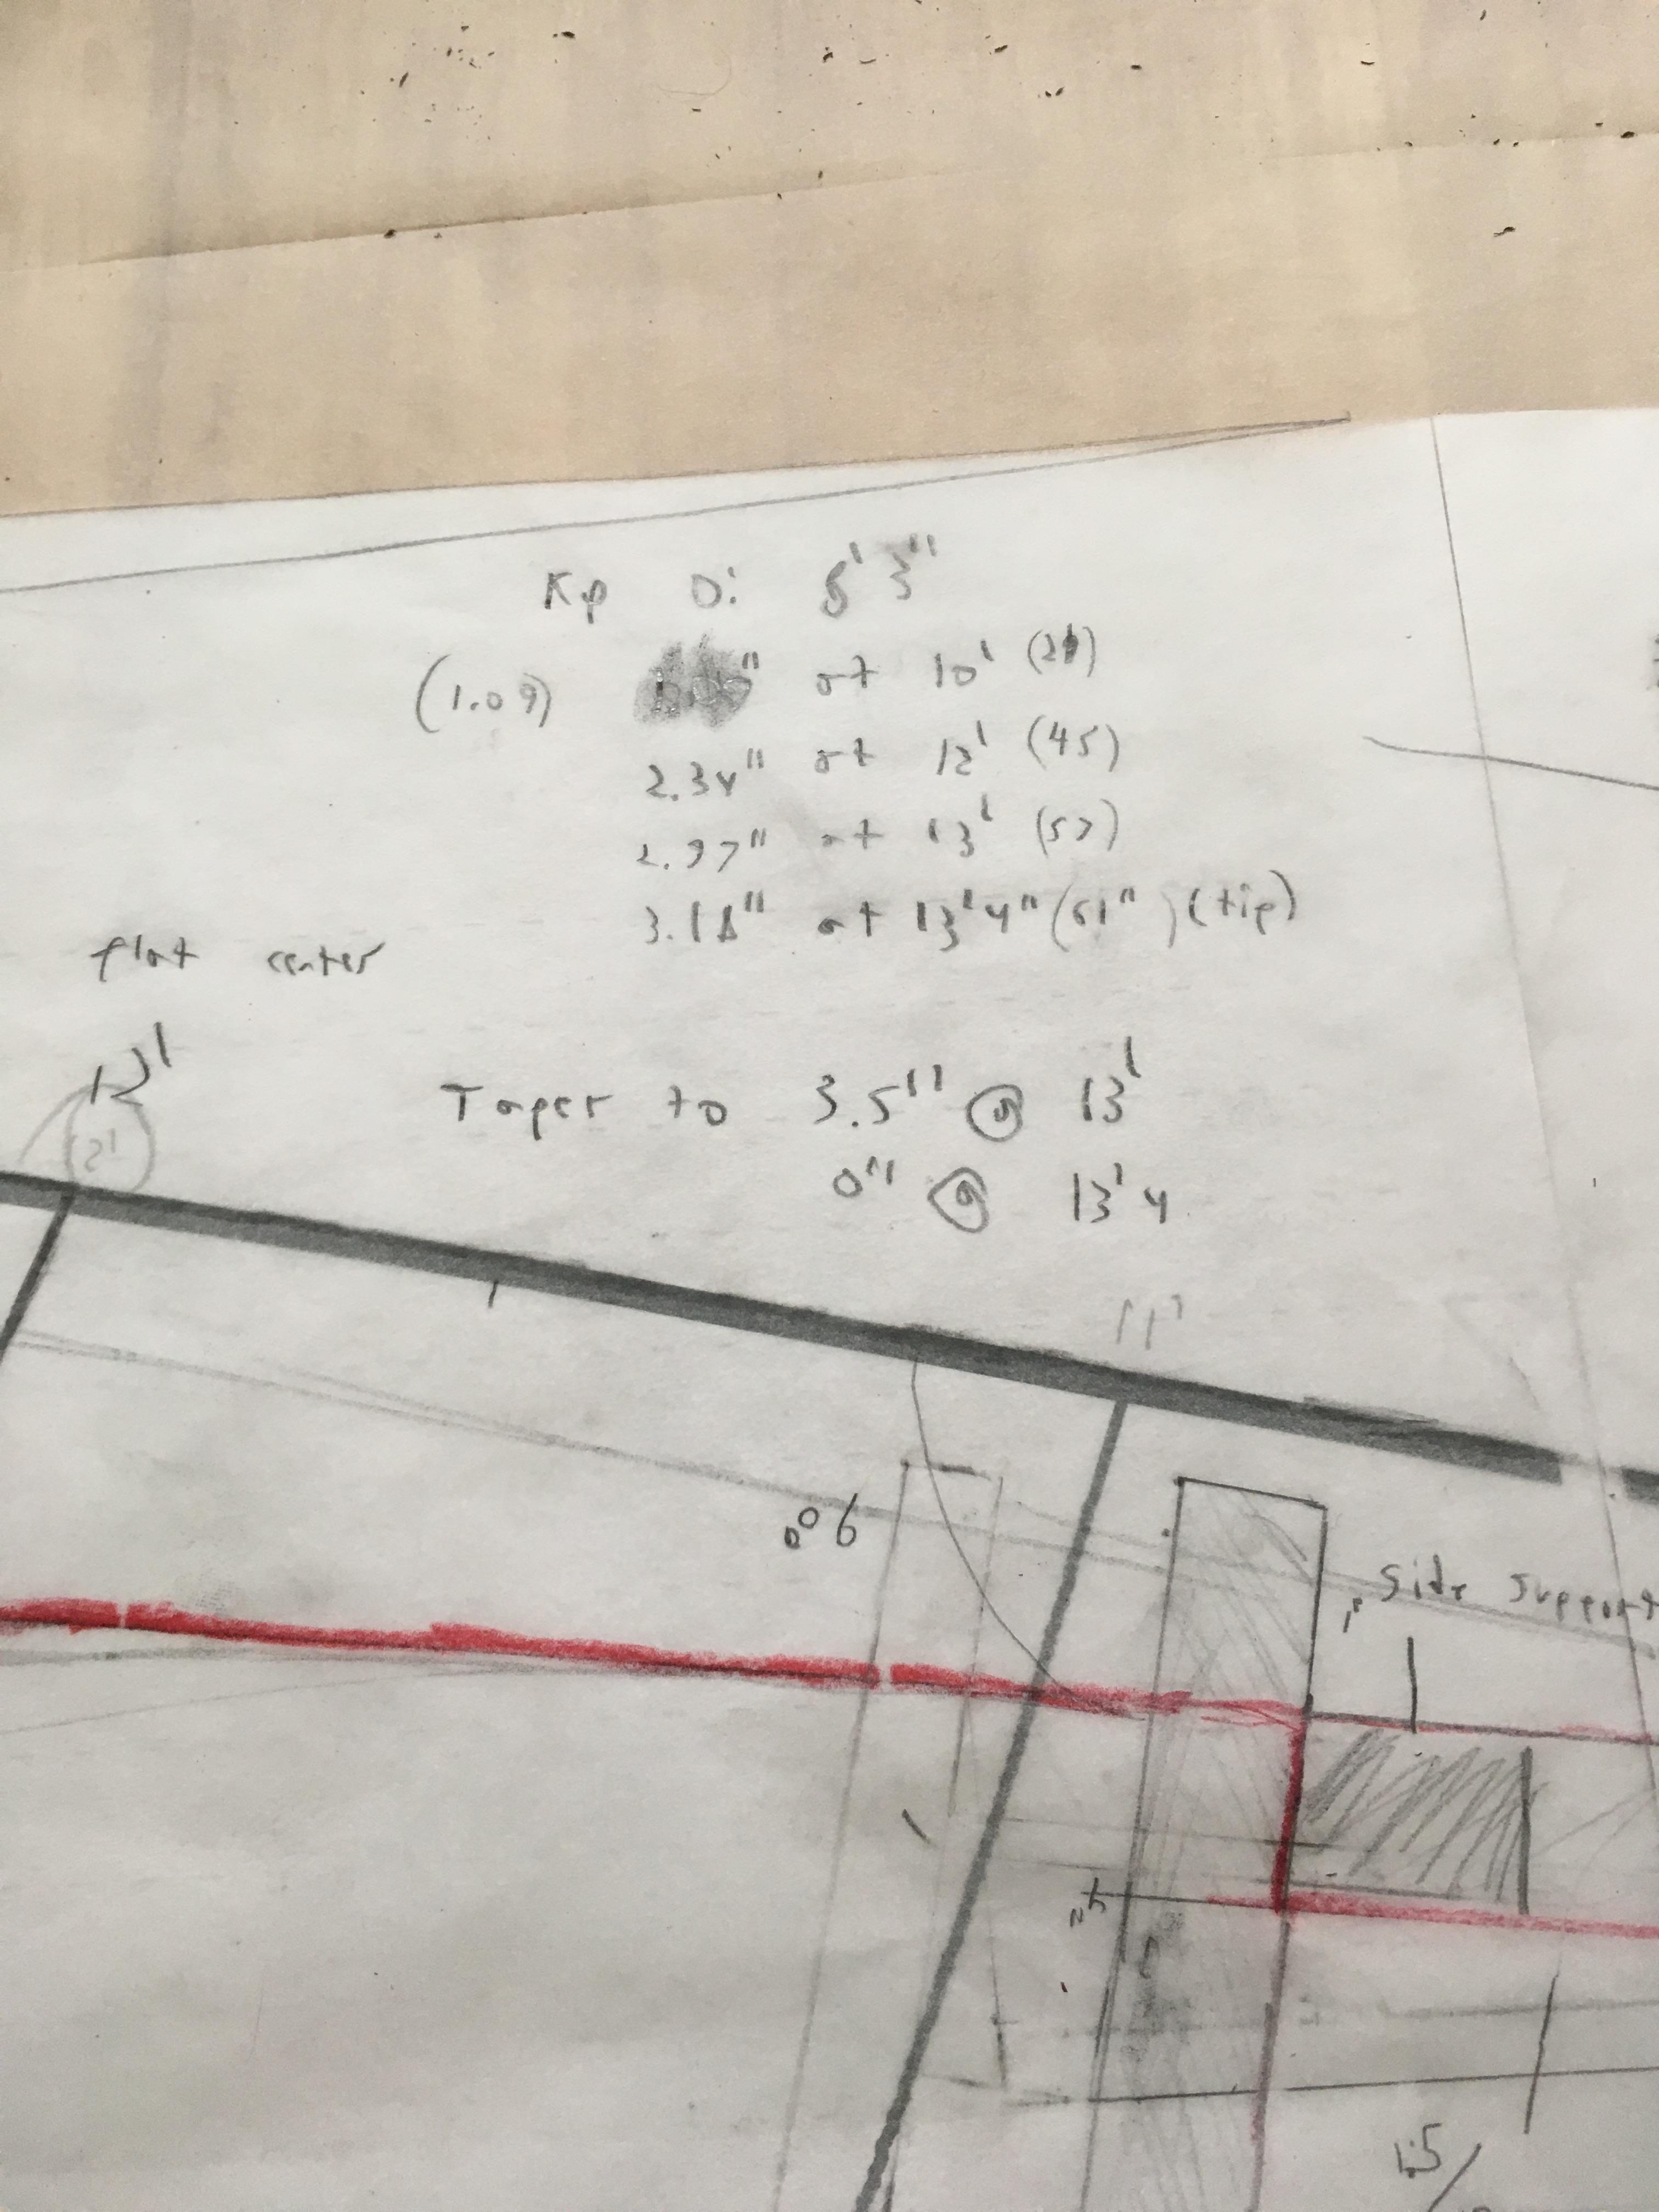 Kp 0: 8' 3"
(1.09) " at 10' (21)
2.34" at 12' (45)
2.97" at 13' (57)
3.18" at 13'4" (61") (tip)
flat center
12'
2'
Taper to 3.5" @ 13'
0" @ 13'4
11'
90°
1"
Side Support
4"
1.5/